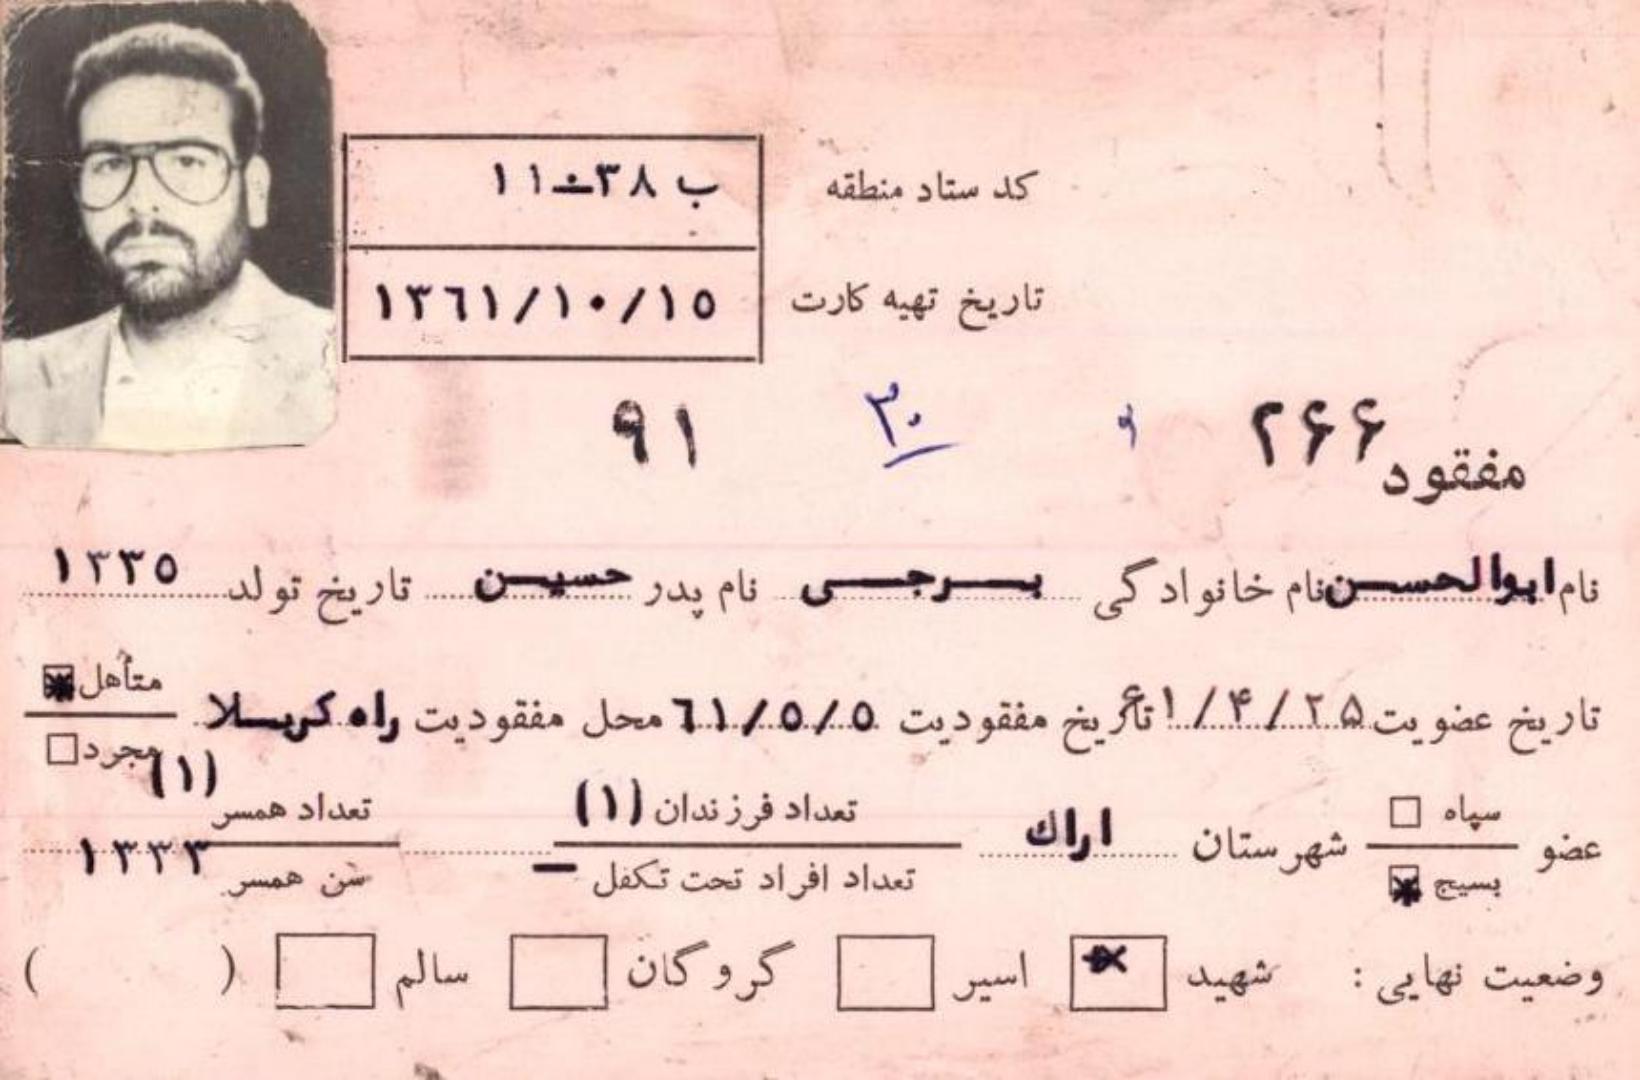 کد ستاد منطقه ب ۳۸-۱۱
تاریخ تهیه کارت ۱۳۶۱/۱۰/۱۵
مفقود ۲۶۶ ۳۰ ۹۱
نام ابوالحسن نام خانوادگی برجی نام پدر حسین تاریخ تولد ۱۳۳۵
تاریخ عضویت ۶۱/۴/۲۵ تاریخ مفقودیت ۶۱/۵/۵ محل مفقودیت راه کربلا متأهل
مجرد
عضو سپاه شهرستان اراك تعداد فرزندان (۱) تعداد همسر (۱)
بسیج تعداد افراد تحت تکفل – سن همسر ۱۳۳۳
وضعیت نهایی : شهید اسیر گروگان سالم ( )